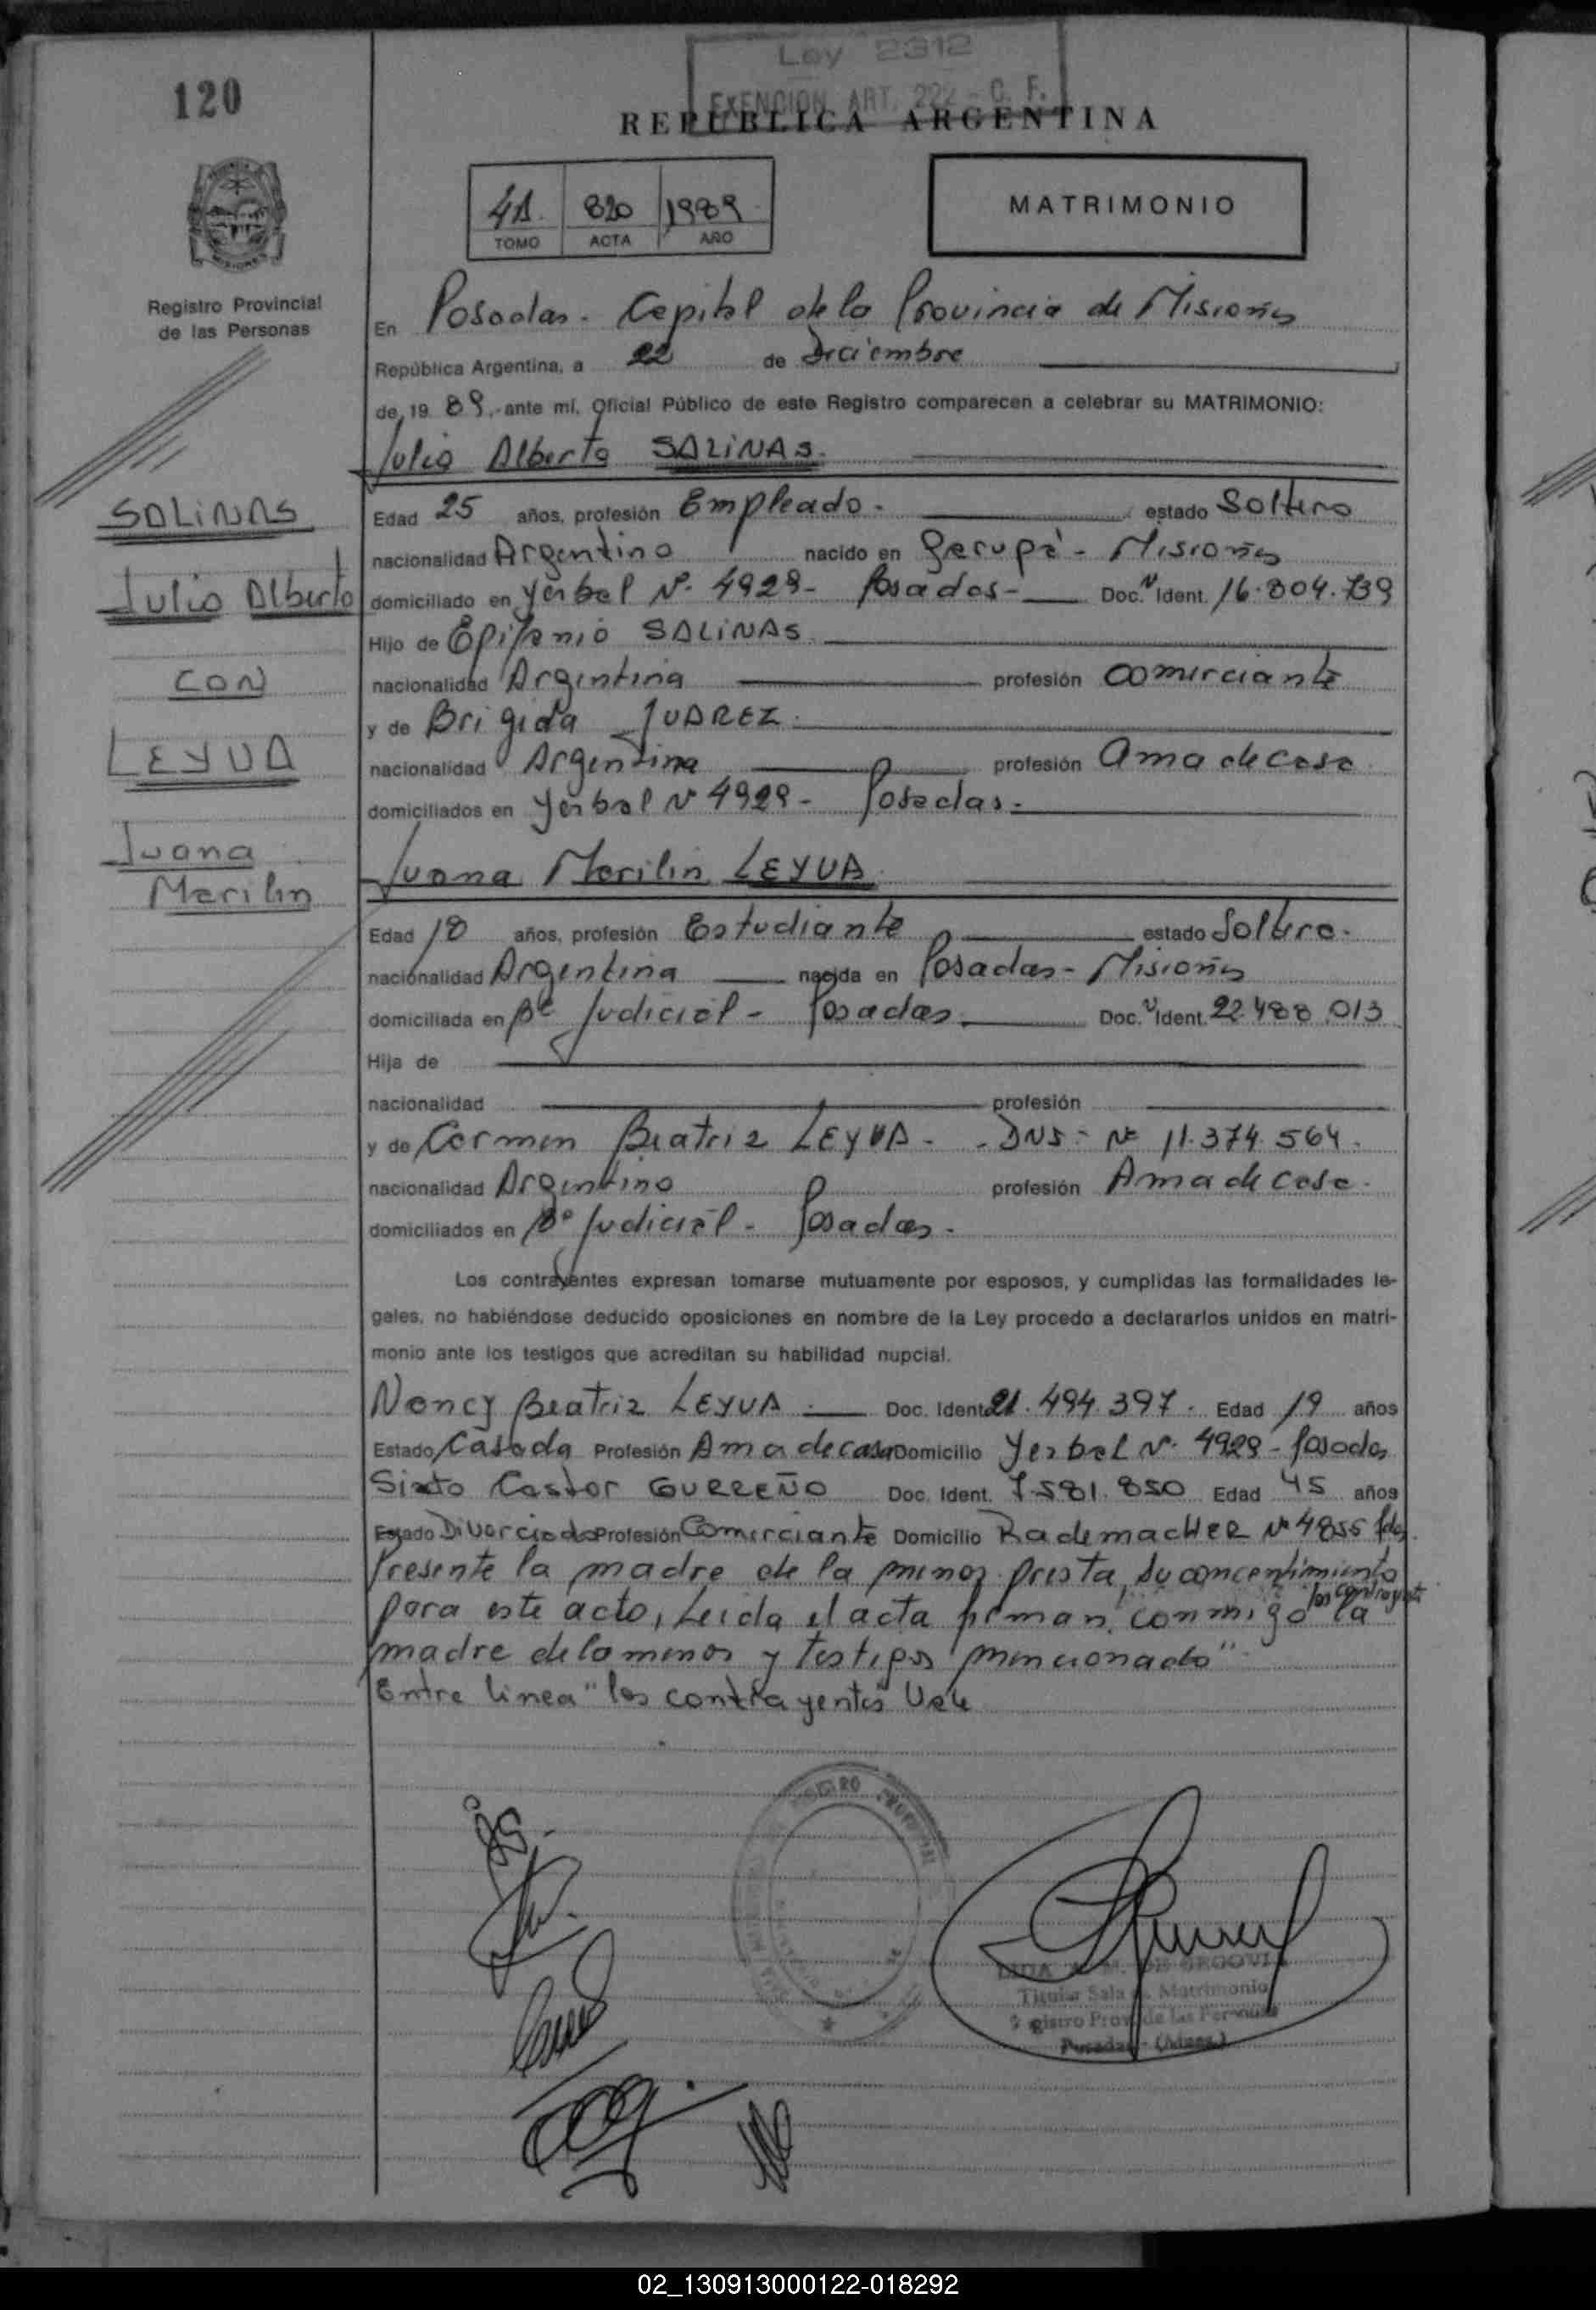 Ley 2312
EXENCION ART. 222 - C. F.
120
REPUBLICA ARGENTINA
4A 820 1989
TOMO ACTA AÑO
MATRIMONIO
Registro Provincial
de las Personas
En Posadas - Capital de la Provincia de Misiones
República Argentina, a 22 de Diciembre
de 19 89, ante mí, Oficial Público de este Registro comparecen a celebrar su MATRIMONIO:
Julio Alberto SALINAS.
SALINAS
Julio Alberto
CON
LEYVA
Juana
Marilin
Edad 25 años, profesión Empleado - estado Soltero
nacionalidad Argentino nacido en Garupá - Misiones
domiciliado en Yerbal Nº 4929 - Posadas - Doc. Ident. 16.804.739
Hijo de Epifanio SALINAS
nacionalidad Argentina profesión comerciante
y de Brigida JUAREZ.
nacionalidad Argentina profesión Ama de casa
domiciliados en Yerbal Nº 4929 - Posadas -
Juana Marilin LEYVA
Edad 18 años, profesión Estudiante estado Soltera.
nacionalidad Argentina nacida en Posadas - Misiones
domiciliada en Bº Judicial - Posadas Doc. Ident. 22.488.013
Hija de
nacionalidad profesión
y de Carmen Beatriz LEYVA - - DNI - Nº 11.374.564.
nacionalidad Argentino profesión Ama de casa.
domiciliados en Bº Judicial - Posadas -
Los contrayentes expresan tomarse mutuamente por esposos, y cumplidas las formalidades le-
gales, no habiéndose deducido oposiciones en nombre de la Ley procedo a declararlos unidos en matri-
monio ante los testigos que acreditan su habilidad nupcial.
Nancy Beatriz LEYVA Doc. Ident. 21.494.397. Edad 19 años
Estado Casada Profesión Ama de casa Domicilio Yerbal Nº 4929 - Posadas
Sixto Castor GURREÑO Doc. Ident. 7.581.850 Edad 45 años
Estado Divorciado Profesión Comerciante Domicilio RademacHER Nº 4855 Pdas.
Presente la madre de la menor presta su concentimiento
para este acto, Leida el acta firman conmigo los contrayentes la
madre de la menor y testigos mencionado"
Entre linea "los contrayentes" Vale
REGISTRO PROVINCIAL
LIDA A. M. DE SEGOVIA
Titular Sala Matrimonio
Registro Prov. de las Personas
Posadas - (Mnes.)
02_130913000122-018292